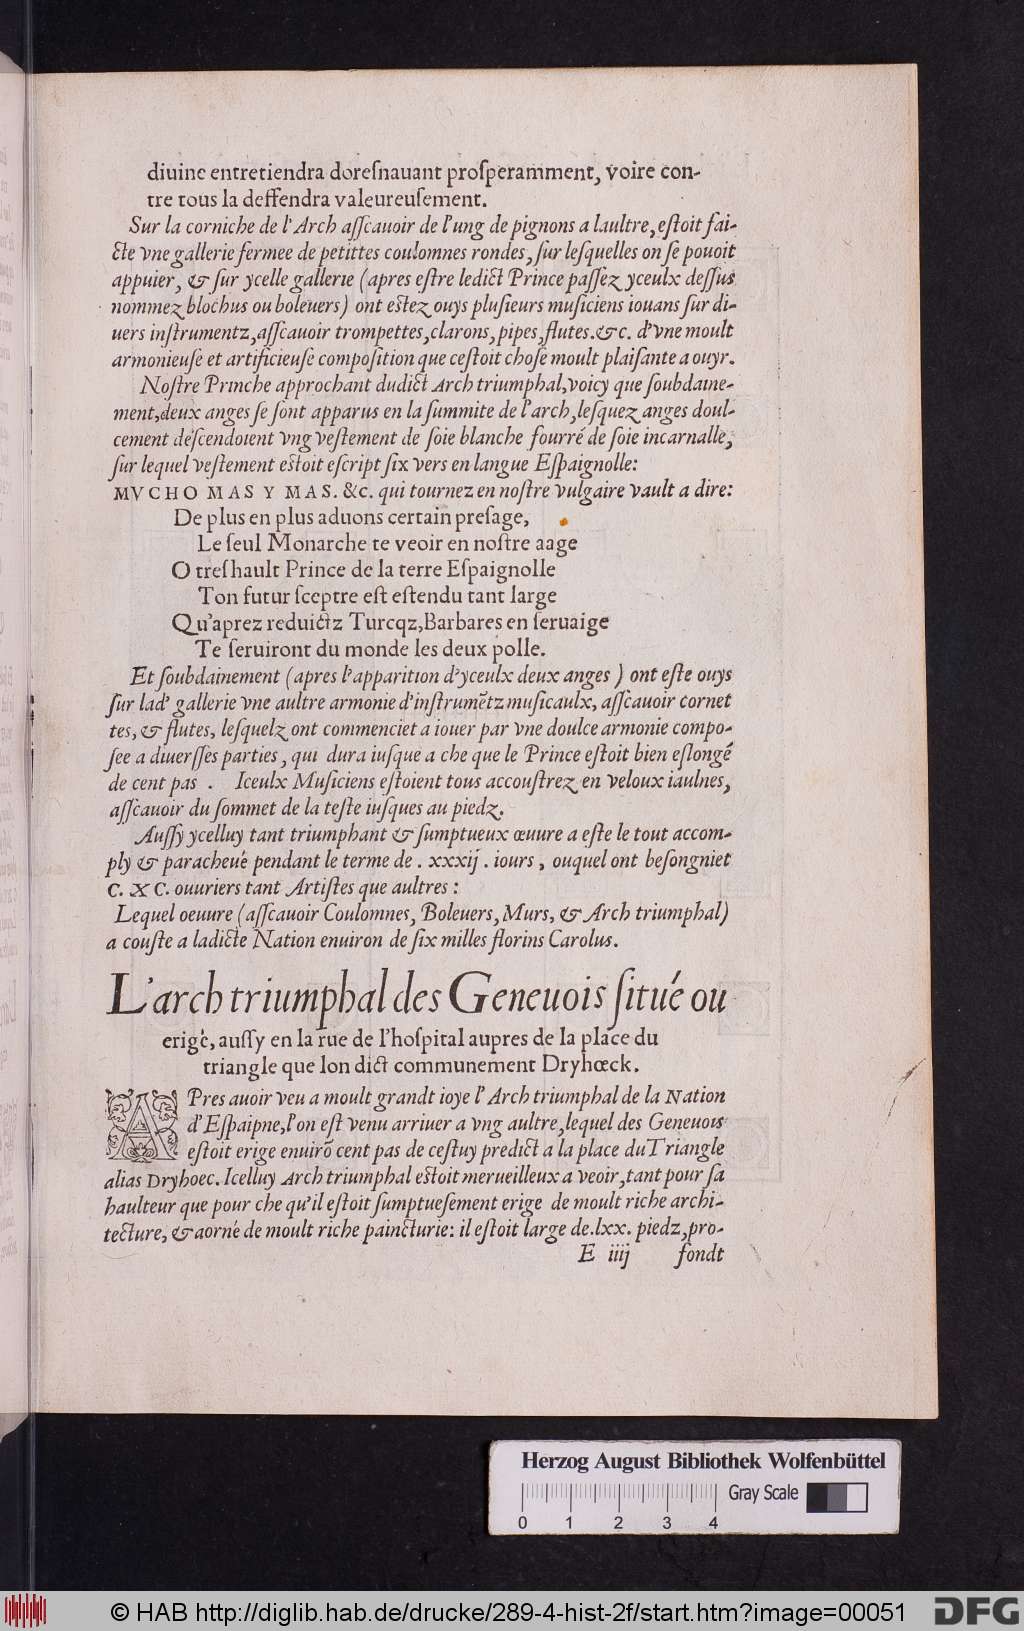 diuine entretiendra doreſnauant proſperamment, voire con-
tre tous la deffendra valeureuſement.
Sur la corniche de l'Arch aſſcauoir de l'ung de pignons a laultre, eſtoit fai-
cte vne gallerie fermee de petittes coulomnes rondes, ſur leſquelles on ſe pouoit
appuier, & ſur ycelle gallerie (apres eſtre ledict Prince paſſez yceulx deſſus
nommez blochus ou boleuers) ont eſtez ouys pluſieurs muſiciens iouans ſur di-
uers inſtrumentz, aſſcauoir trompettes, clarons, pipes, flutes.&c. d'vne moult
armonieuſe et artificieuſe compoſition que ceſtoit choſe moult plaiſante a ouyr.
Noſtre Prinche approchant dudict Arch triumphal, voicy que ſoubdaine-
ment, deux anges ſe ſont apparus en la ſummite de l'arch, leſquez anges doul-
cement deſcendoient vng veſtement de ſoie blanche fourré de ſoie incarnalle,
ſur lequel veſtement eſtoit eſcript ſix vers en langue Eſpaignolle:
MVCHO MAS Y MAS. &c. qui tournez en noſtre vulgaire vault a dire:
De plus en plus aduons certain preſage,
Le ſeul Monarche te veoir en noſtre aage
O treſhault Prince de la terre Eſpaignolle
Ton futur ſceptre eſt eſtendu tant large
Qu'aprez reduictz Turcqz, Barbares en ſeruaige
Te ſeruiront du monde les deux polle.
Et ſoubdainement (apres l'apparition d'yceulx deux anges) ont eſte ouys
ſur lad' gallerie vne aultre armonie d'inſtrumẽtz muſicaulx, aſſcauoir cornet
tes, & flutes, leſquelz ont commenciet a iouer par vne doulce armonie compo-
ſee a diuerſſes parties, qui dura iuſque a che que le Prince eſtoit bien eſlongé
de cent pas . Iceulx Muſiciens eſtoient tous accouſtrez en veloux iaulnes,
aſſcauoir du ſommet de la teſte iuſques au piedz.
Auſſy ycelluy tant triumphant & ſumptueux œuure a eſte le tout accom-
ply & paracheué pendant le terme de . xxxij . iours, ouquel ont beſongniet
C. XC. ouuriers tant Artiſtes que aultres :
Lequel oeuure (aſſcauoir Coulomnes, Boleuers, Murs, & Arch triumphal)
a couſte a ladicte Nation enuiron de ſix milles florins Carolus.
L'arch triumphal des Geneuois ſitué ou
erigé, auſſy en la rue de l'hoſpital aupres de la place du
triangle que lon dict communement Dryhœck.
APres auoir veu a moult grandt ioye l'Arch triumphal de la Nation
d'Eſpaipne, l'on eſt venu arriuer a vng aultre, lequel des Geneuois
eſtoit erige enuirõ cent pas de ceſtuy predict a la place du Triangle
alias Dryhoec. Icelluy Arch triumphal eſtoit merueilleux a veoir, tant pour ſa
haulteur que pour che qu'il eſtoit ſumptueſement erige de moult riche archi-
tecture, & aorné de moult riche paincturie: il eſtoit large de .lxx. piedz, pro-
E iiij fondt
Herzog August Bibliothek Wolfenbüttel
Gray Scale
0 1 2 3 4
© HAB http://diglib.hab.de/drucke/289-4-hist-2f/start.htm?image=00051
DFG